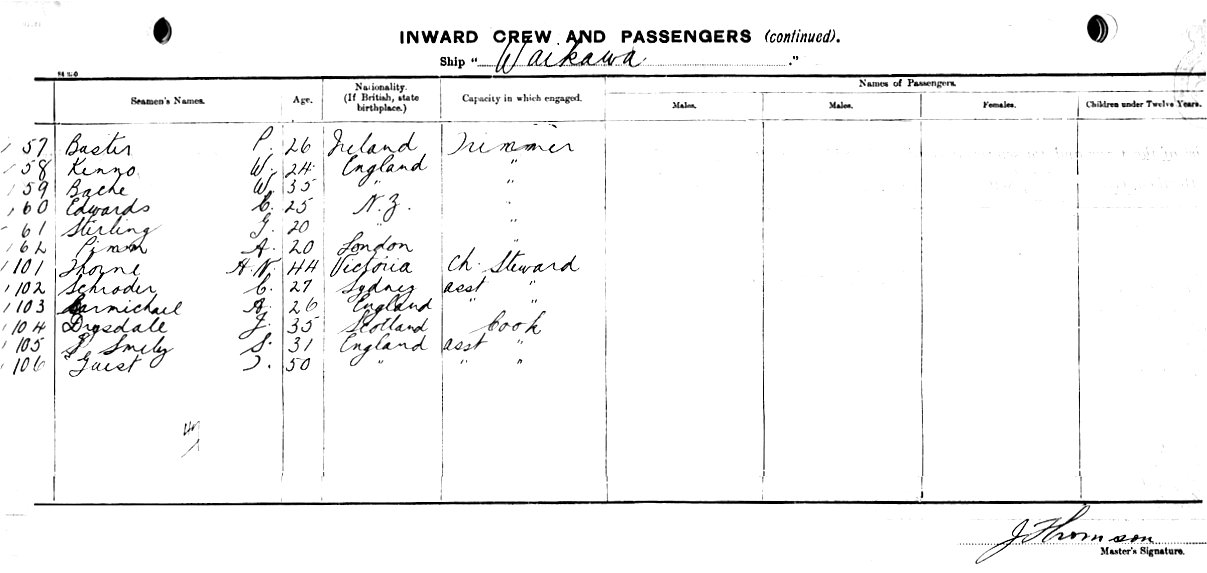 INWARD CREW AND PASSENGERS (continued).
Ship "Waikawa."
Seamen's Names. Age. Nationality. (If British, state birthplace.) Capacity in which engaged. Names of Passengers.
Males. Males. Females. Children under Twelve Years.
57 Baster P. 26 Ireland Trimmer
58 Kenno W. 24 England "
59 Bache W. 35 " "
60 Edwards C. 25 N.Z. "
61 Stirling G. 20 " "
62 Pimm A. 20 London "
101 Thorne A.N. 44 Victoria Ch. Steward
102 Schroder C. 27 Sydney asst "
103 Carmichael A. 26 England " "
104 Drysdale J. 35 Scotland Cook
105 Smily S. 31 England asst "
106 Guest 50 " " "
J Thomson
Master's Signature.